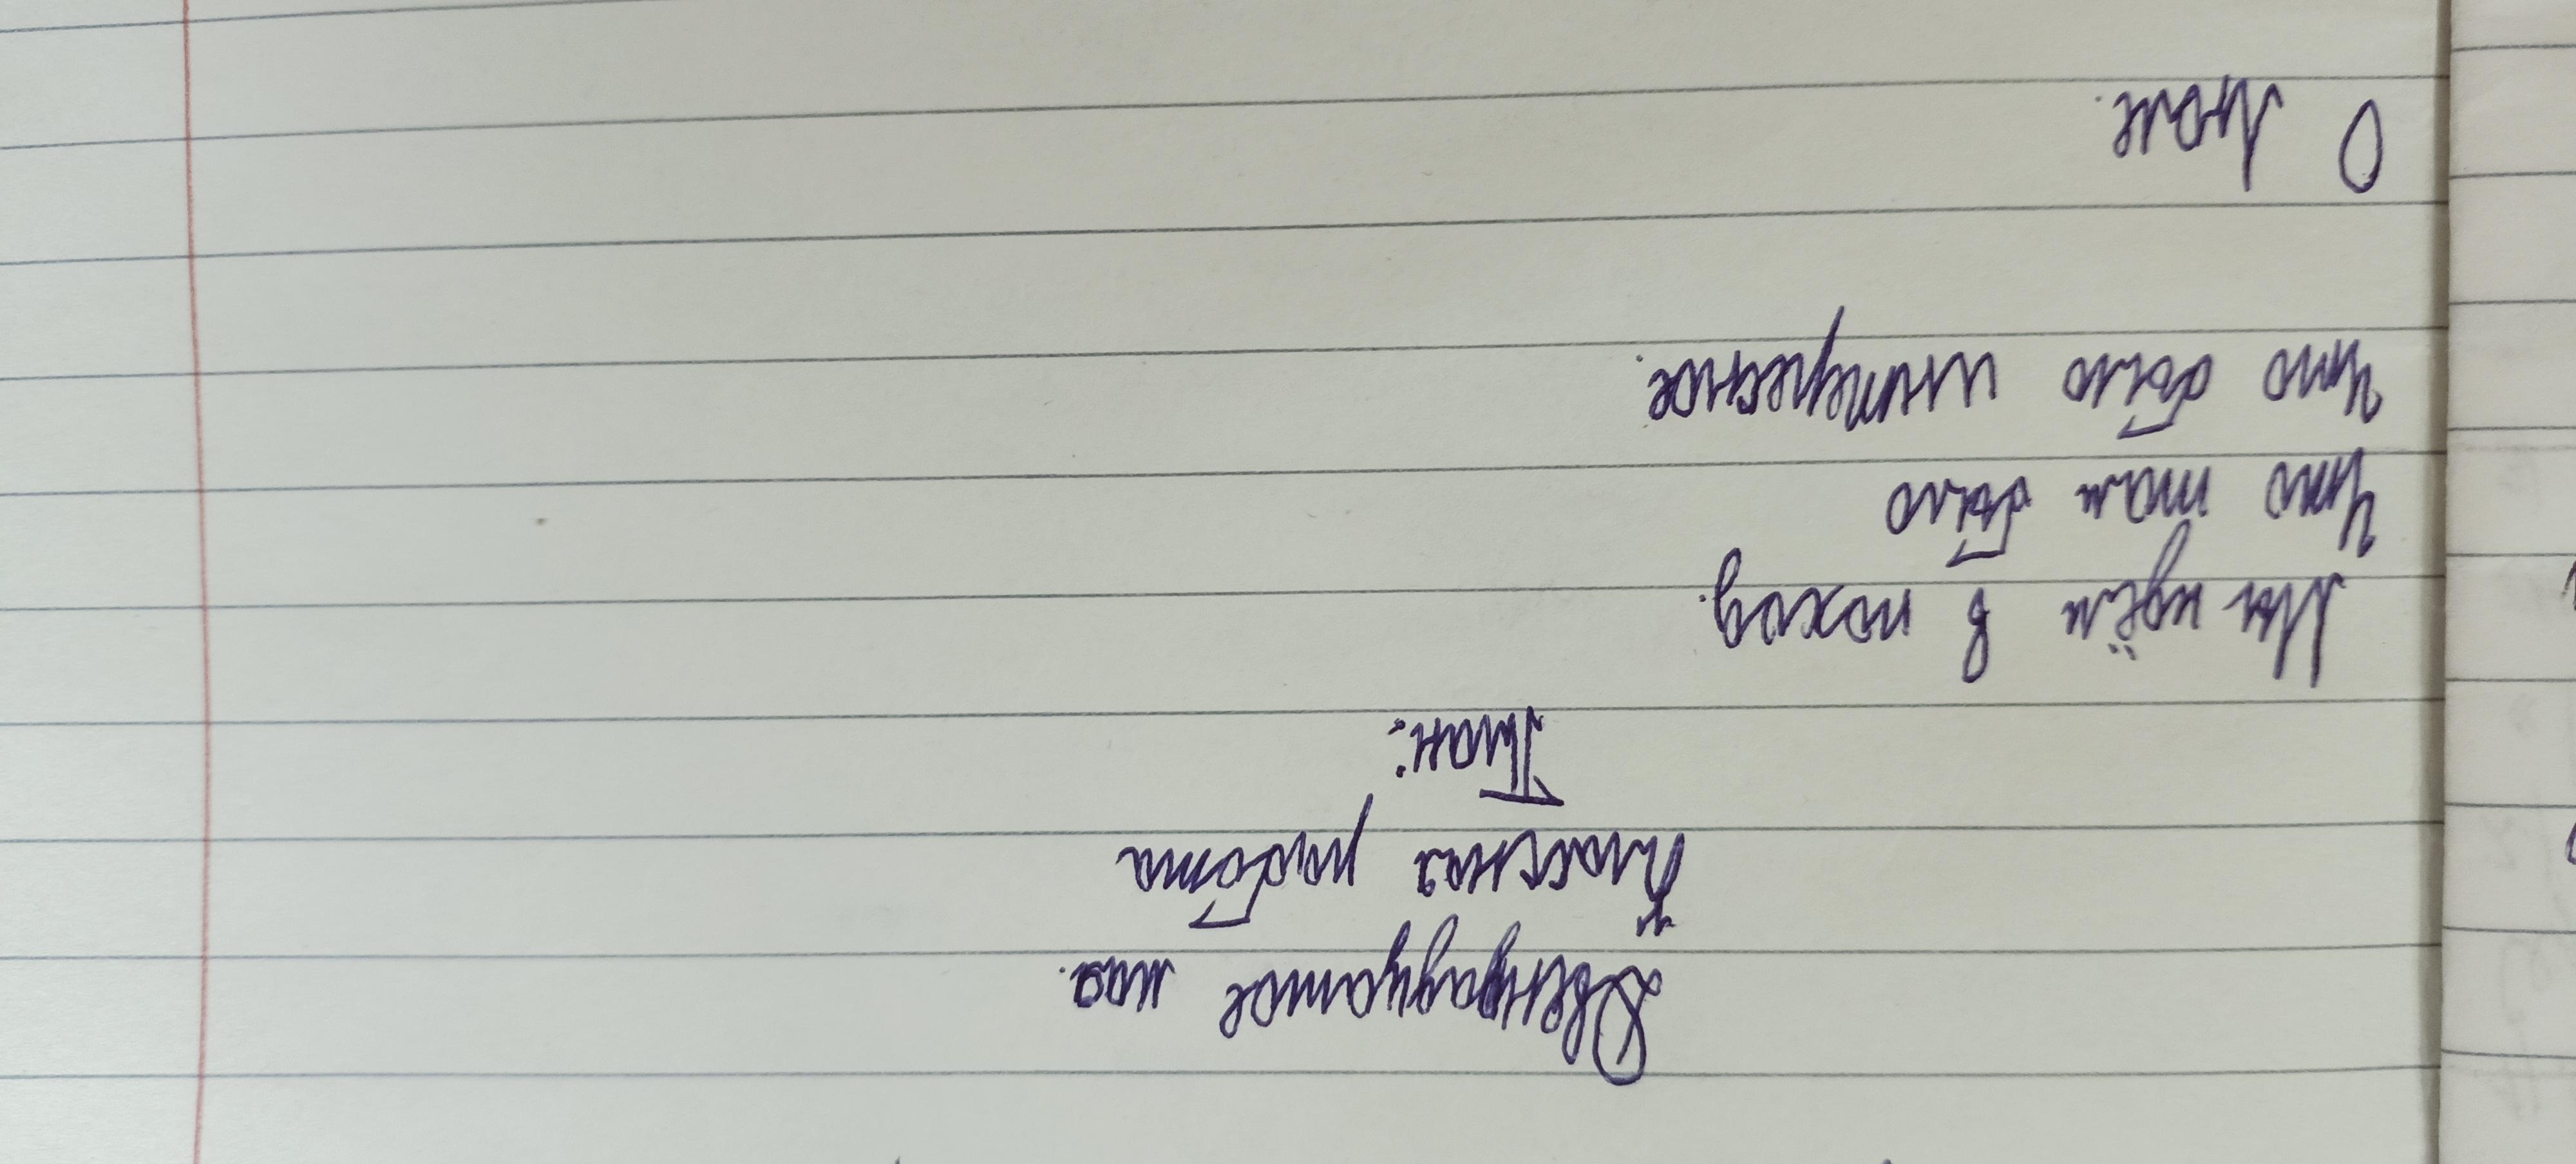 Двенадцатое мая.
Классная работа
План:
Мы идём в поход.
Что там было
Что было интересное.
О Мопе.